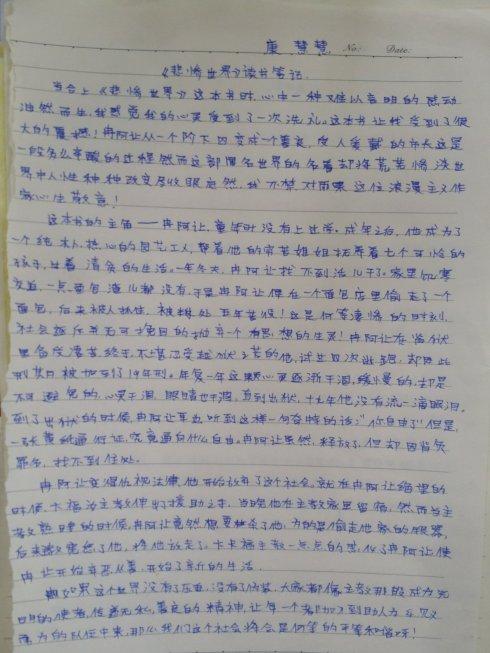 康 慧慧 No: Date:
《悲惨世界》读书笔记
当合上《悲惨世界》这本书时，心中一种难以言明的感动
油然而生，我感觉我的心灵受到了一次洗礼。这本书让我受到了很
大的震撼！冉阿让从一个阶下囚变成一个善良、受人爱戴的市长这是
一段多么辛酸的过程然而这部闻名世界的名著却将荒芜惨淡世
界中人性种种改变尽收眼底然，我不禁对雨果这位浪漫主义作
家心生敬意！
这本书的主角——冉阿让，童年时没有上过学。成年之后，他成为了
一个纯朴、热心的园艺工人，帮着他的穷苦姐姐抚养着七个可怜的
孩子，过着清贫的生活。一年冬天，冉阿让找不到活儿干了。家里饥寒
交迫，一点面包渣儿都没有，于是冉阿让便在一个面包店里偷走了一个
面包，后来被人抓住，被判处五年苦役！这是何等凄惨的时刻，
社会越斥并无可挽回的抛弃一个有思想的生灵！冉阿让在监狱
里备受凄苦终于，不堪忍受越狱之苦的他，试过四次逃跑，却因此
刑其月被加到了19年刑。年复一年这颗心灵逐渐干涸，缓慢的，却是
不可避免的，心灵干涸，眼睛也干涸，直到出狱，十九年他没有流一滴眼泪。
到了出狱的时候，冉阿让耳边听到这样一句奇特的话："你自由了"但是，
一张黄纸通行证，究竟通向什么自由，冉阿让虽然，释放了，但却因背负
罪名，找不到住处。
冉阿让变得仇视法律，他开始放弃了这个社会。就在冉阿让绝望的
时候，卞福汝主教伸出了援助之手，当晚他在主教家里留宿，然而当主
教熟睡的时候，冉阿让竟然想要杀了他，为的是偷走他家的银器，
后来教宽恕了他，将他放走了。卞卡福主教一点点的感化了冉阿让使
冉让开始弃恶从善，开始了新的生活。
如果这个世界没有了压迫，没有了伪装，大家都像主教那般成为光
明的使者，传递无私、善良的精神，让每一个都加入到助人为乐见义
勇为的队伍中来，那么我们这个社会将会是何等的平等和谐呀！